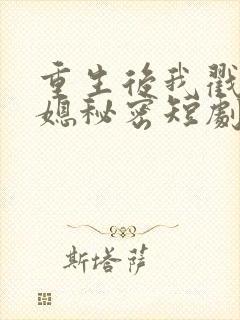 重生後我戳
媳秘密短劇
斯塔薩